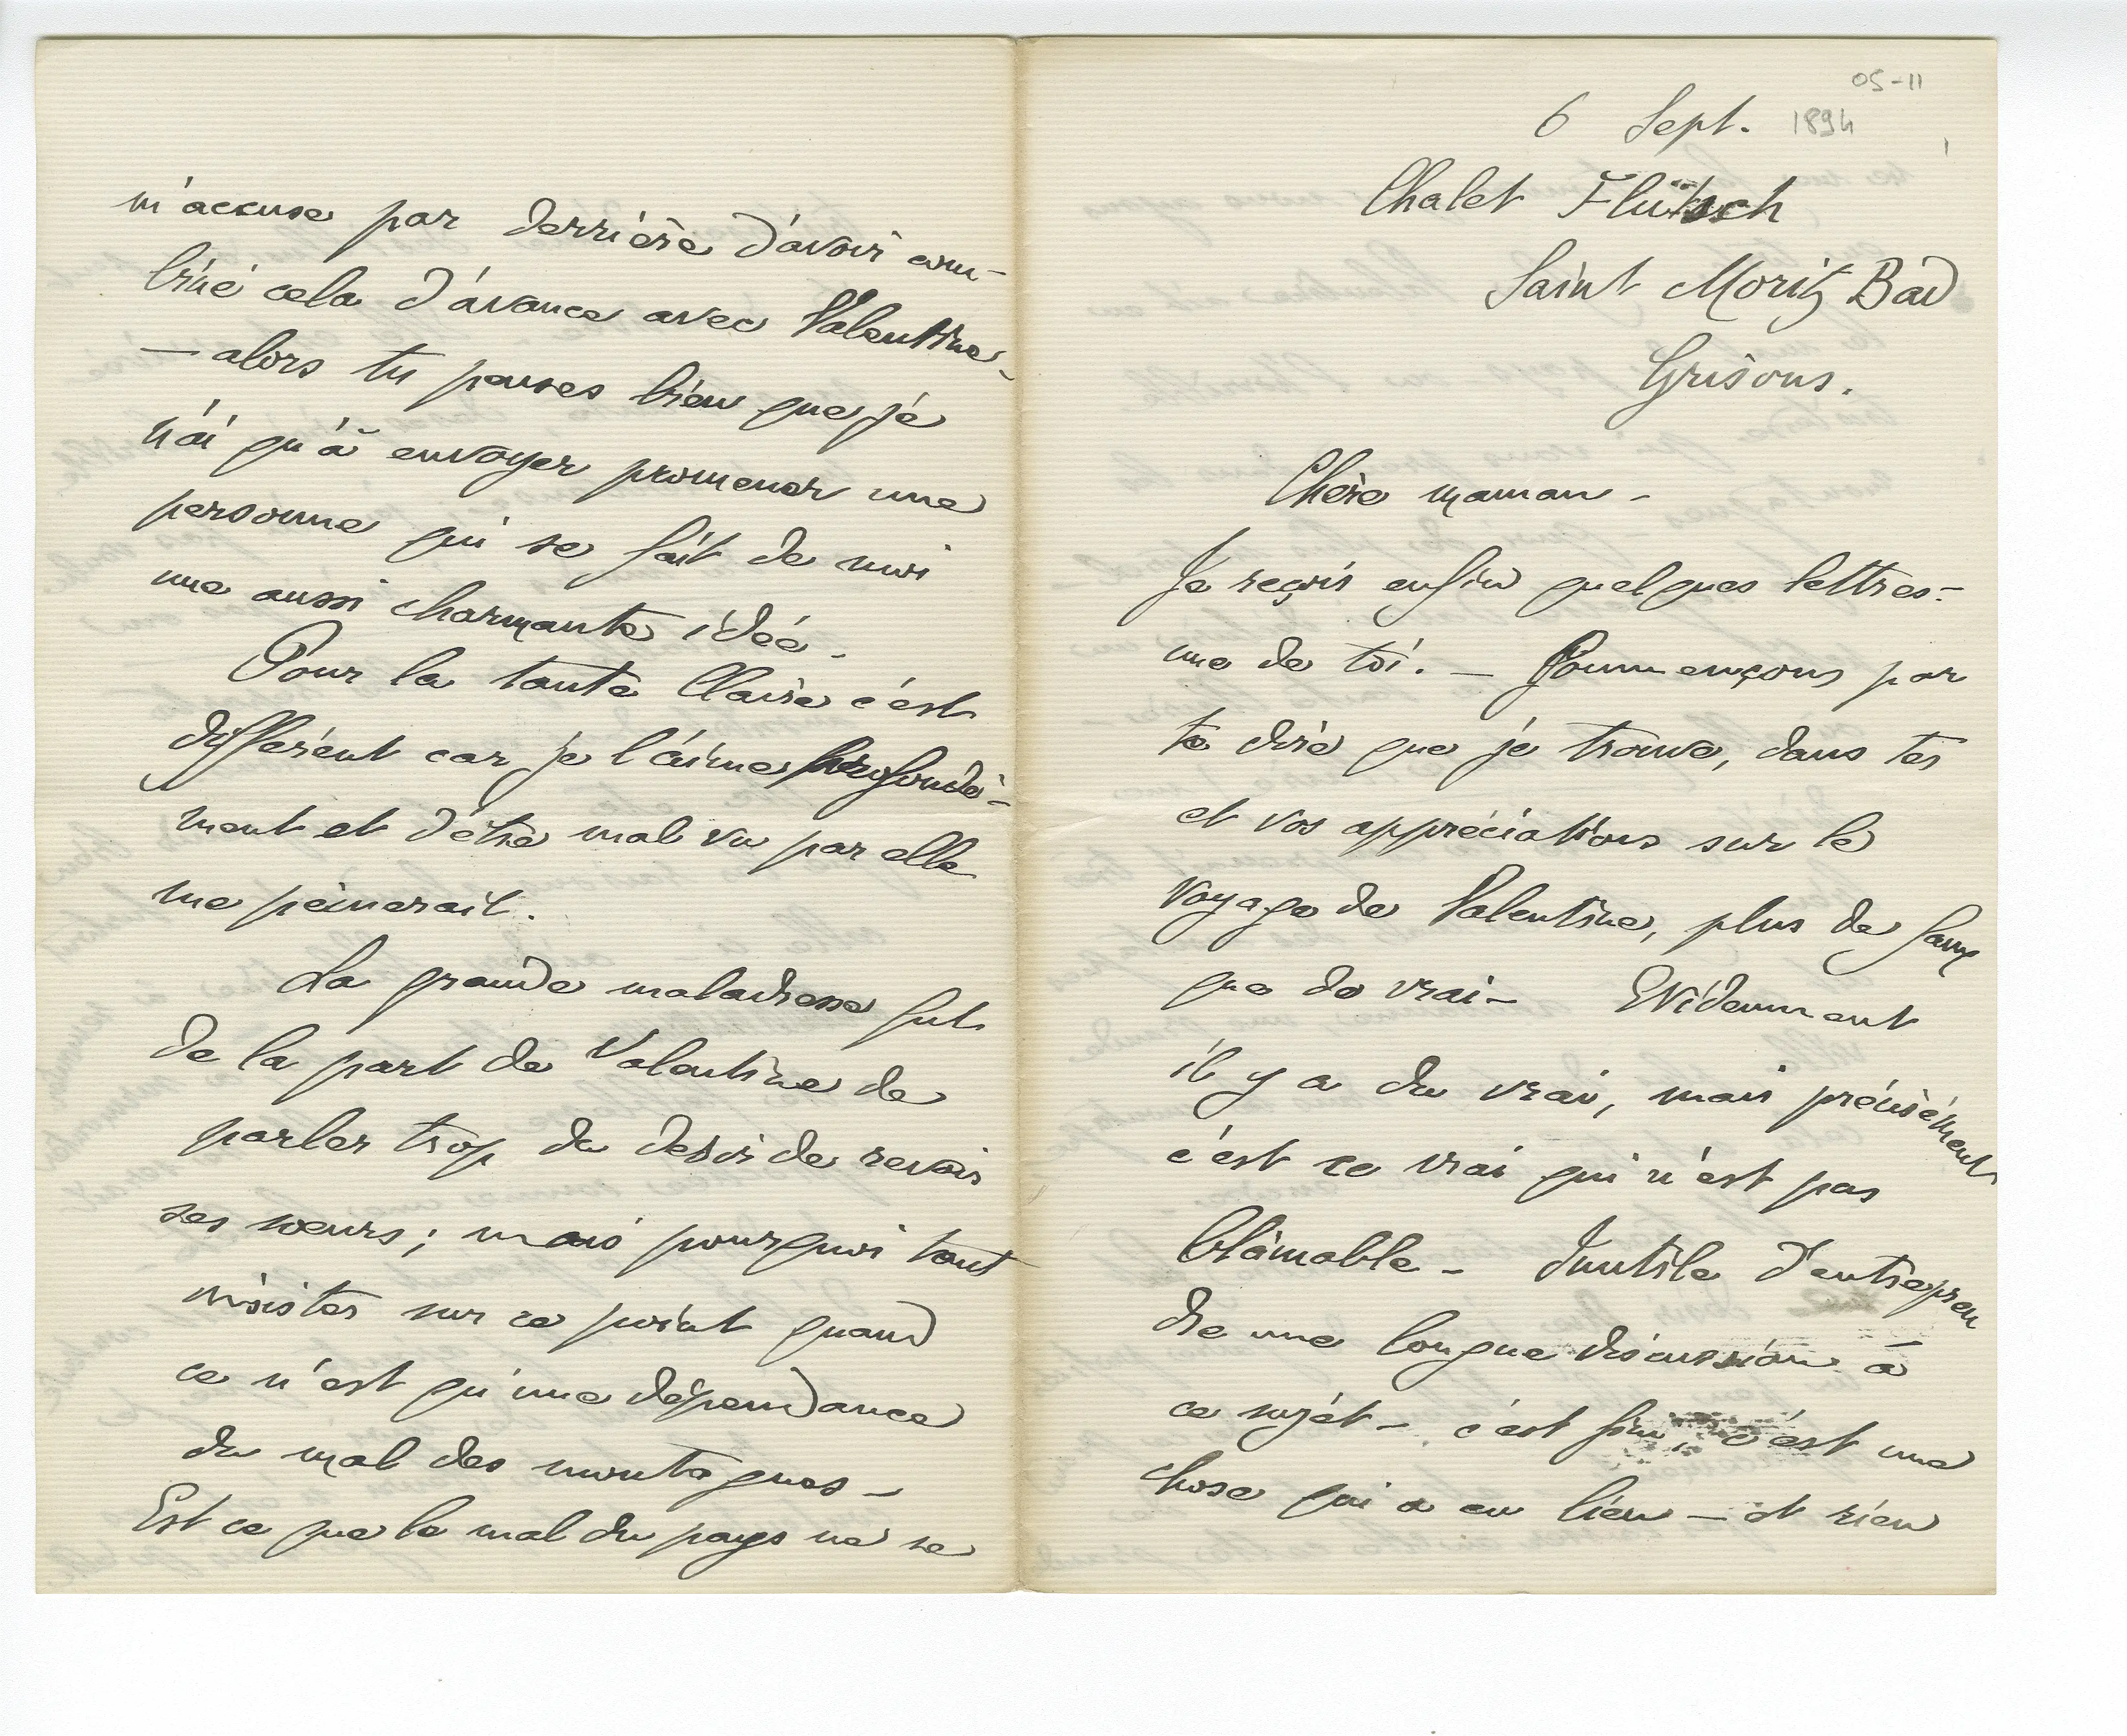 05-11
6 Sept. 1894
Chalet Flütsch
Saint Moritz Bad
Grisons.
Chère maman -
Je reçois enfin quelques lettres -
une de toi. — Commençons par
te dire que je trouve, dans tes
et vos appréciations sur le
voyage de Valentine, plus de faux
que de vrai - Evidemment
il y a du vrai, mais précisément
c'est ce vrai qui n'est pas
blâmable - Inutile d'entrepren
dre une longue discussion à
ce sujet - c'est fini, c'est une
chose qui a eu lieu — et rien
m'accuse par derrière d'avoir com-
biné cela d'avance avec Valentine -
— alors tu penses bien que je
n'ai qu'à envoyer promener une
personne qui se fait de moi
une aussi charmante idée -
Pour la tante Claire c'est
différent car je l'aime profondé-
ment et d'être mal vu par elle
me peinerait.
La grande maladresse fut
de la part de Valentine de
parler trop du desir de revoir
ses sœurs ; mais pourquoi tant
insister sur ce point quand
ce n'est qu'une dépendance
du mal des montagnes -
Est ce que le mal du pays ne se